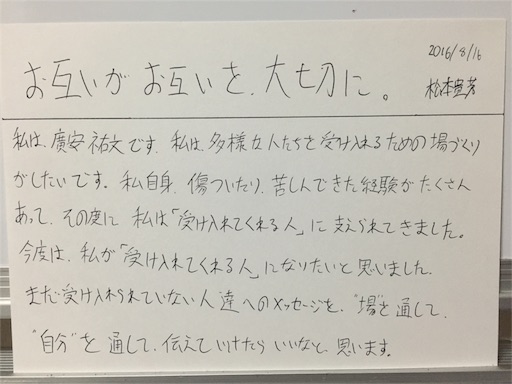 2016/8/16
お互いがお互いを、大切に。
松本
私は、廣安祐文です。私は、多様な人たちを受け入れるための場づくり
がしたいです。私自身、傷ついたり、苦しんできた経験がたくさん
あって、その度に私は「受け入れてくれる人」に支えられてきました。
今度は、私が「受け入れてくれる人」になりたいと思いました。
まだ受け入れられていない人達へのメッセージを、"場"を通して、
"自分"を通して、伝えていけたらいいなと、思います。